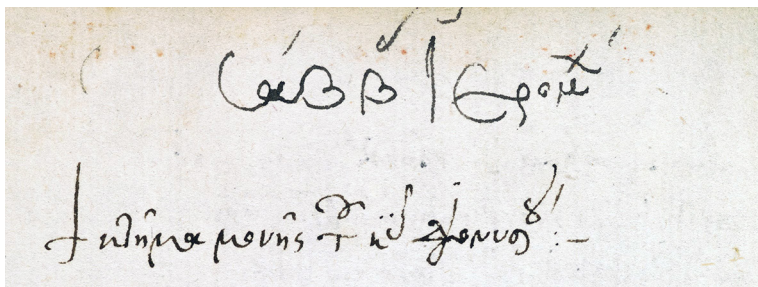 σάββ ἱερομ
+ κτῆμα μονῆς τοῦ κυ διονυσου :–